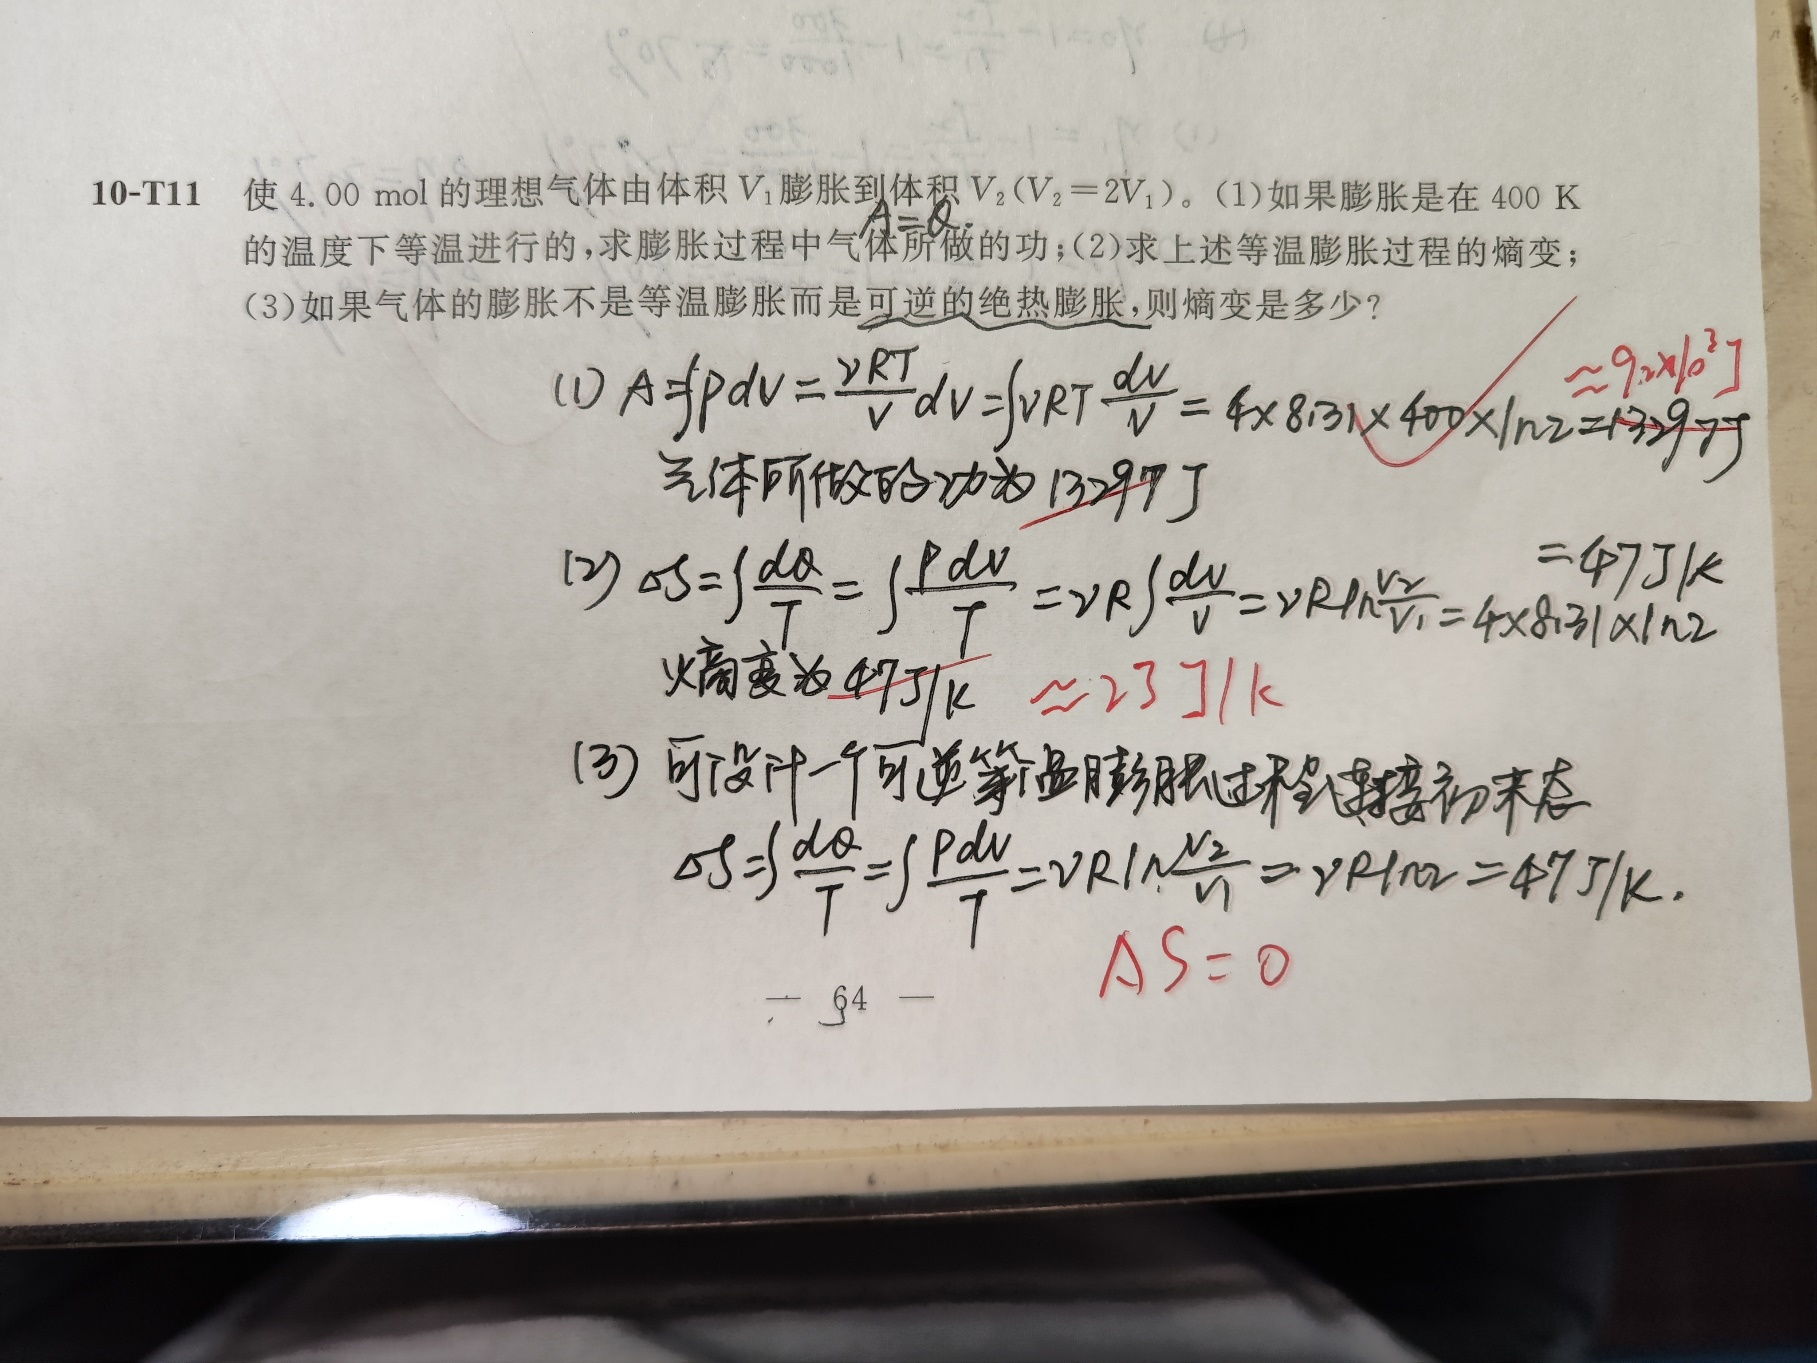 10-T11 使 4.00 mol 的理想气体由体积 V₁膨胀到体积 V₂(V₂=2V₁)。(1)如果膨胀是在 400 K
A=Q.
的温度下等温进行的,求膨胀过程中气体所做的功;(2)求上述等温膨胀过程的熵变;
(3)如果气体的膨胀不是等温膨胀而是可逆的绝热膨胀,则熵变是多少?
≈9.2×10³J
(1) A=∫PdV=νRT/V dV=∫νRT dV/V=4×8.31×400×ln2=13297J
气体所做的功为13297J
(2) ΔS=∫dQ/T=∫PdV/T=νR∫dV/V=νRlnV₂/V₁=4×8.31×ln2
=47J/K
熵变为47J/K ≈23J/K
(3) 可设计一个可逆等温膨胀过程连接初末态
ΔS=∫dQ/T=∫PdV/T=νRlnV₂/V₁=νRln2=47J/K.
ΔS=0
— 64 —